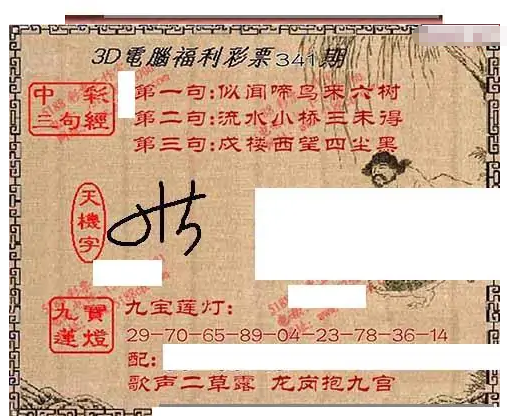 3D電腦福利彩票341期
中彩
三句經
第一句:似闻啼鸟来六树
第二句:流水小桥三未得
第三句:戍楼西望四尘黑
天機字
九寶
蓮燈
九宝莲灯:
29-70-65-89-04-23-78-36-14
配:
歌声二草露 龙岗抱九宫